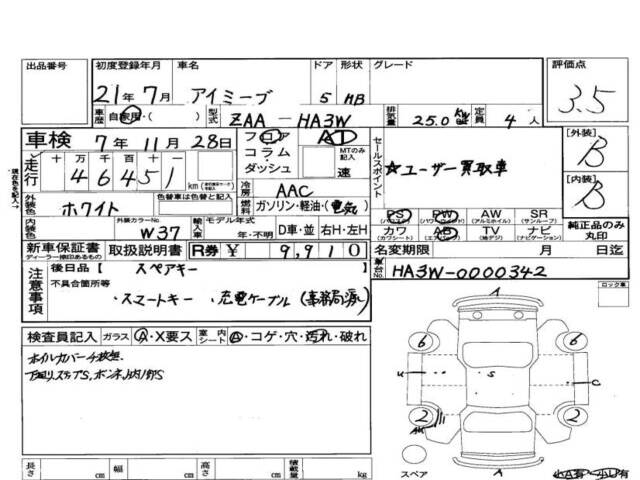 出品番号
初度登録年月 車名 ドア 形状 グレード 評価点
21年 7月 アイミーブ 5 HB 3.5
車歴 自家用・( ) 型式 ZAA-HA3W 排気量 25.0 kw 定員 4人
車検 7年 11月 28日 フロア コラム・ダッシュ AT MTのみ記入 速
走行 十 万 千 百 十 一
4 6 4 5 1 km
セールスポイント
☆ユーザー買取車
[外装] B
[内装] B
冷房 AAC
外装色 ホワイト 色替車は色替と記入
燃料 ガソリン・軽油・(電気)
PS AW SR
(アルミホイル) (サンルーフ)
カワ AB TV ナビ
(カワシート) (エアバッグ) (地デジ) (ナビゲーション)
純正品のみ丸印
内装色 外装カラーNo. W37 輸入車 モデル年式 年・不明 D車・並 右H・左H
新車保証書 取扱説明書 R券 ¥ 9,910
ディーラー捺印あるもの
名変期限 月 日迄
車台No. HA3W-0000342
現在色を記入。
注意事項
後日品 [ スペアキー
不具合箇所等
・スマートキー ・充電ケーブル(事務局渡)
ロック車
検査員記入 ガラス A・X要ス 室内シート A・コゲ・穴・汚れ・破れ
ホイルカバー4枚無.
A
6 6
U S C
2 2
A
スペア
長さ cm 幅 cm 高さ cm 積載量 kg
小A有・小U有